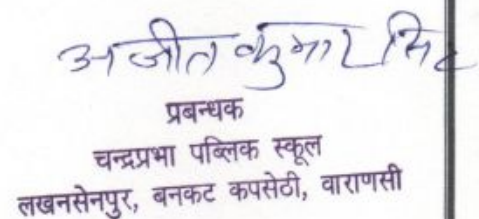 अजीत कुमार सिंह
प्रबन्धक
चन्द्रप्रभा पब्लिक स्कूल
लखनसेनपुर, बनकट कपसेठी, वाराणसी